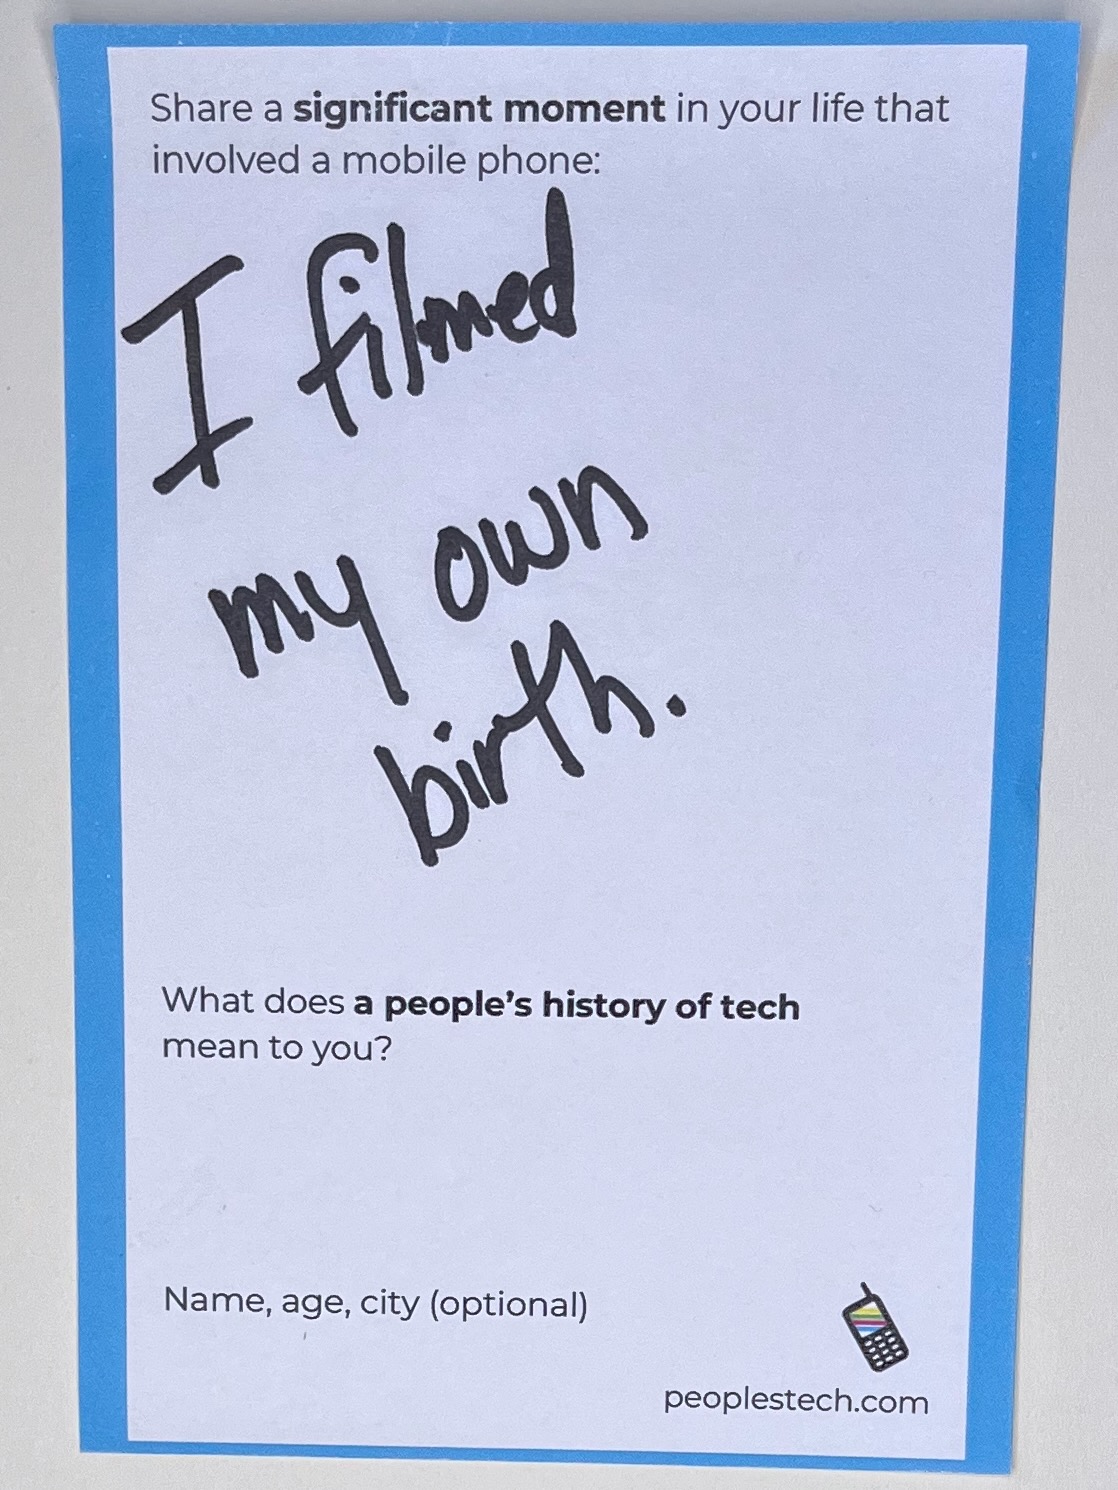 Share a significant moment in your life that
involved a mobile phone:
I filmed
my own
birth.
What does a people's history of tech
mean to you?
Name, age, city (optional)
peoplestech.com